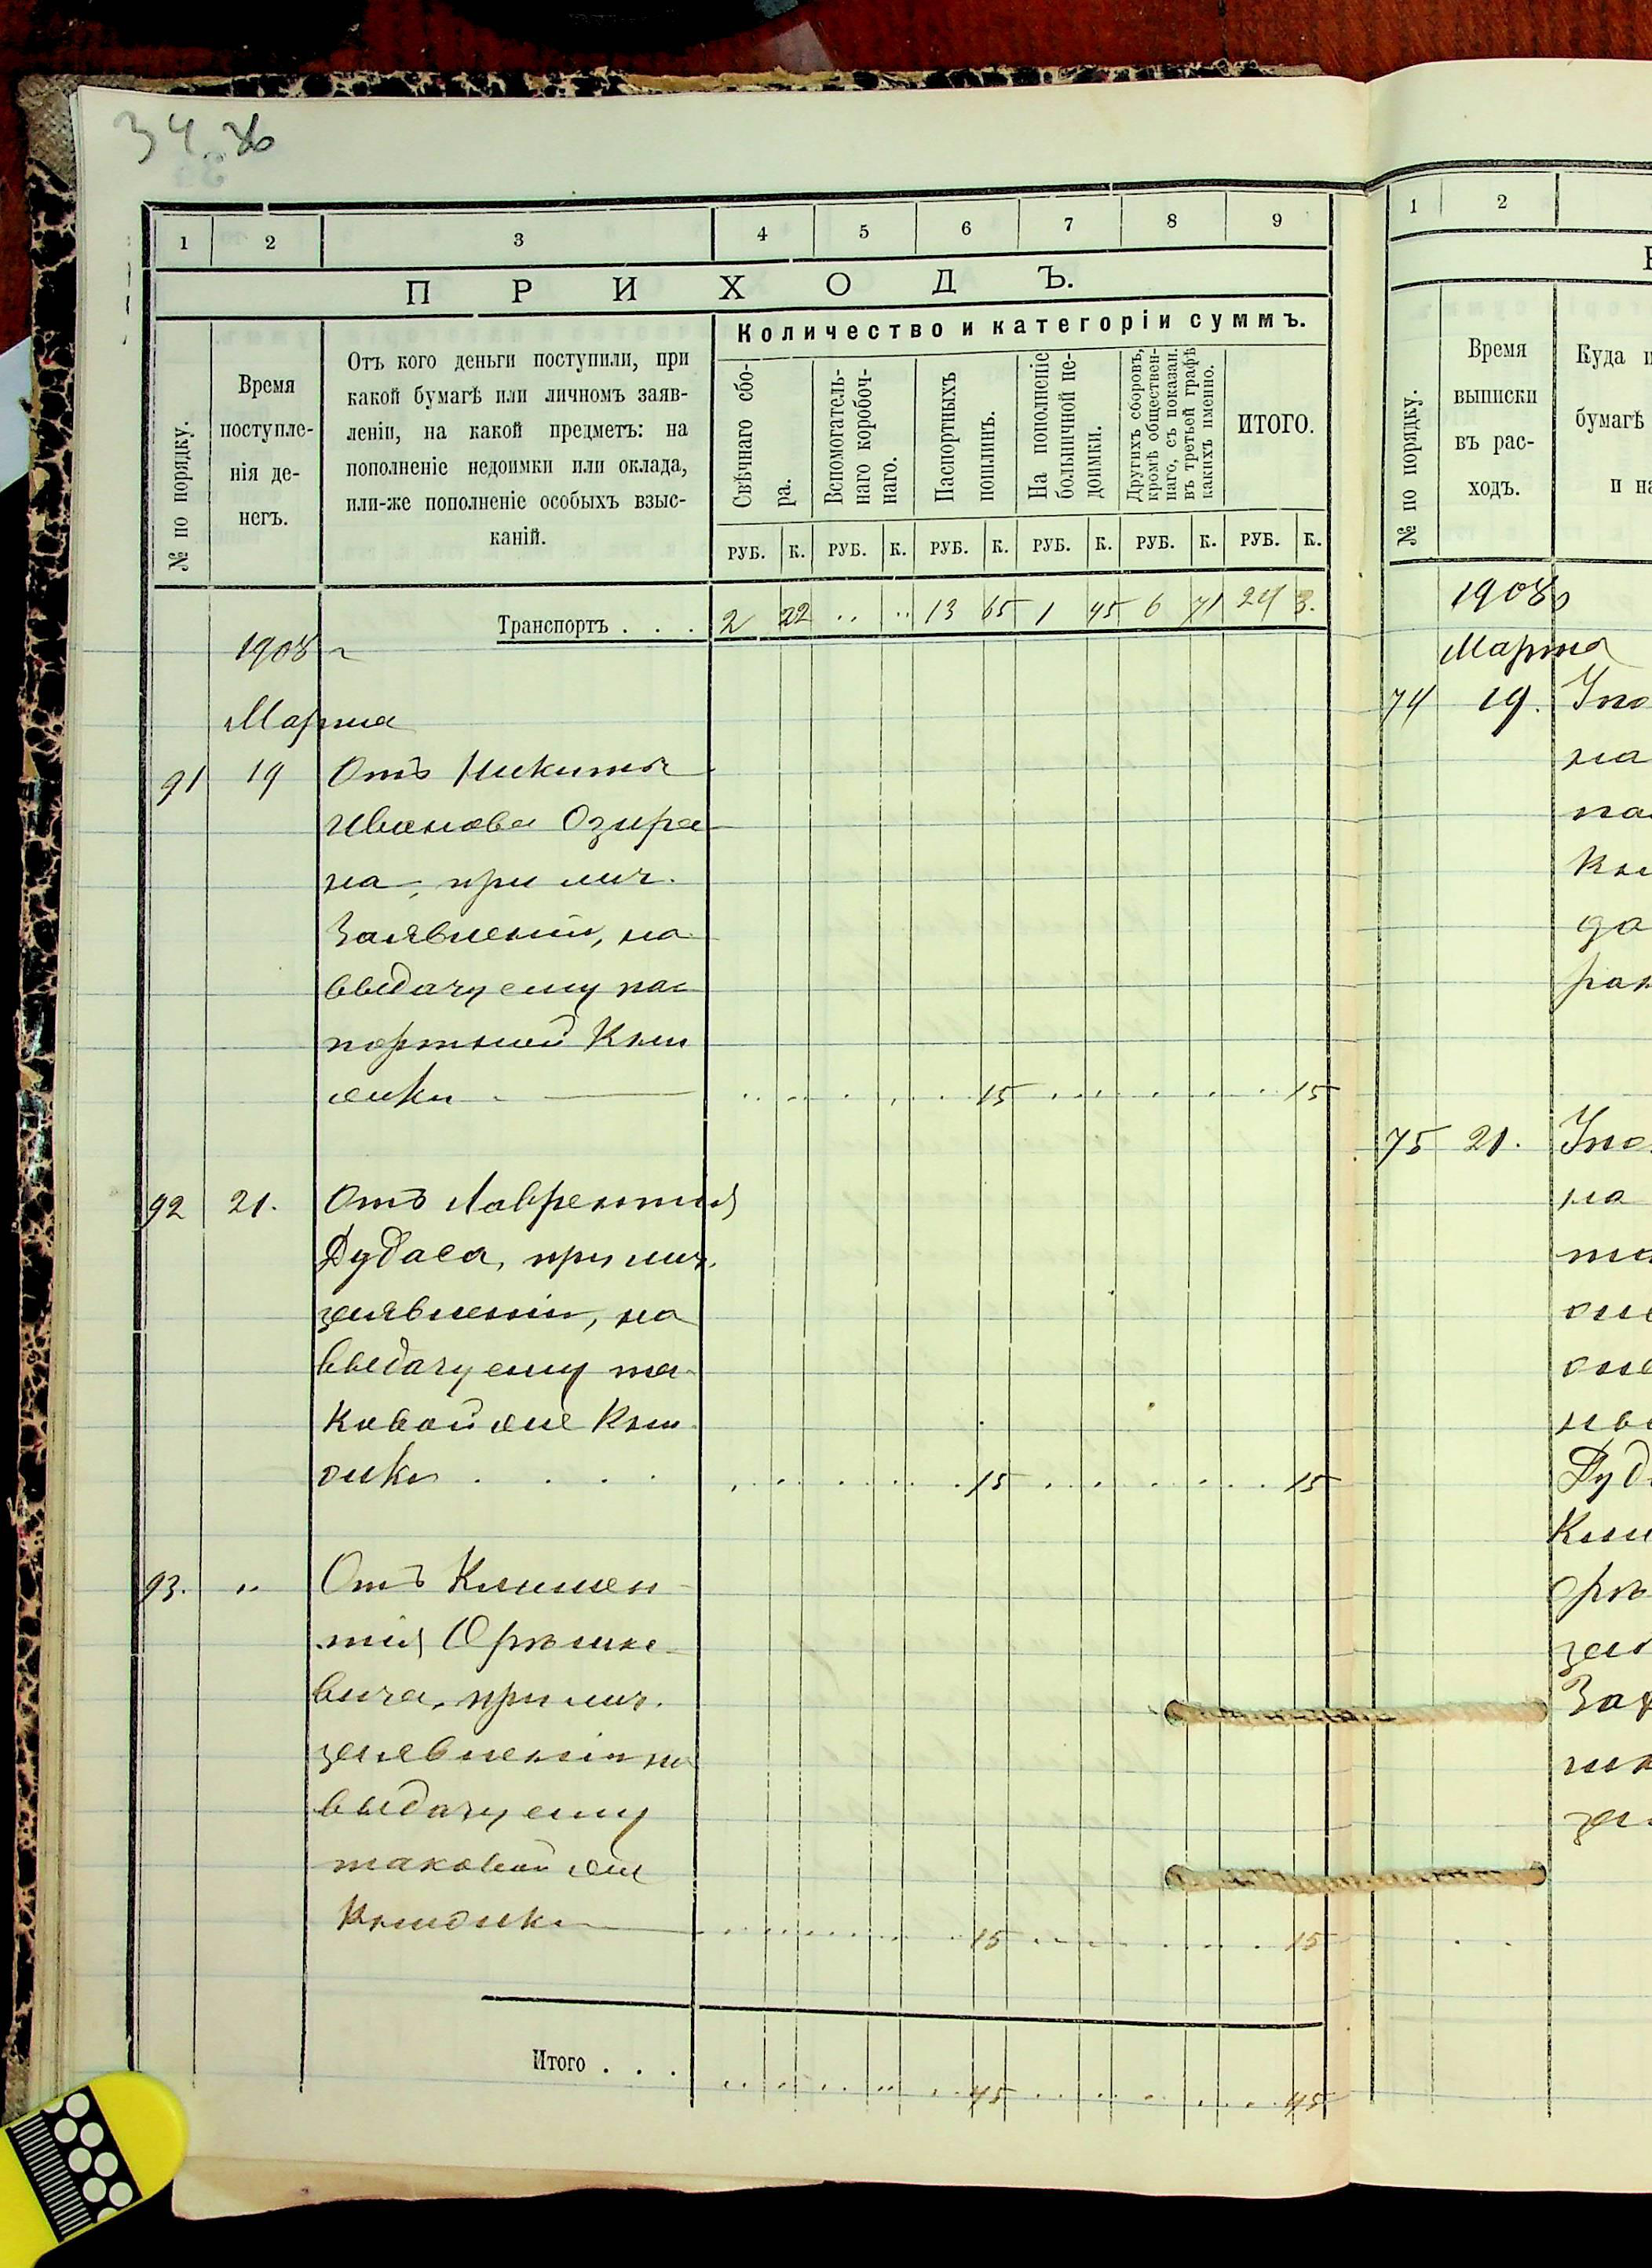 34 36
1 2 3 4 5 6 7 8 9
ПРИХОДЪ.
№ по порядку.
Время
поступле-
нія де-
негъ.
Отъ кого деньги поступили, при
какой бумагѣ или личномъ заяв-
леніи, на какой предметъ: на
пополненіе недоимки или оклада,
или-же пополненіе особыхъ взыс-
каній.
Количество и категоріи суммъ.
Свѣчнаго сбо-
ра.
Вспомогатель-
наго коробоч-
наго.
Паспортныхъ
пошлинъ.
На пополненіе
больничной не-
доимки.
Другихъ сборовъ,
кромѣ обществен-
наго, съ показан.
въ третьей графѣ
какихъ именно.
ИТОГО.
РУБ. К. РУБ. К. РУБ. К. РУБ. К. РУБ. К. РУБ. К.
Транспортъ . . . 2 22 .. .. 13 65 1 45 6 71 24 3.
1908 г
Марта
91 19 Отъ Никиты
Иванова Озира
на, при лич.
Заявленіи, на
выдачу ему пас
портной Кни
жки 15 15
92 21. Отъ Лаврентія
Дудаса, при лич.
заявленіи, на
выдачу ему та-
ковой же Кни
жки . . . . 15 15
93. „ Отъ Климен
тія Орѣшке
вича, при лич.
заявленіи на
выдачу ему
таковой же
Книжки 15 15
Итого . . . 45 45
1 2
№ по порядку.
Время
выписки
въ рас-
ходъ.
Куда
бумагѣ
и на
1908
Марта
74 19.
на
75 21.
на